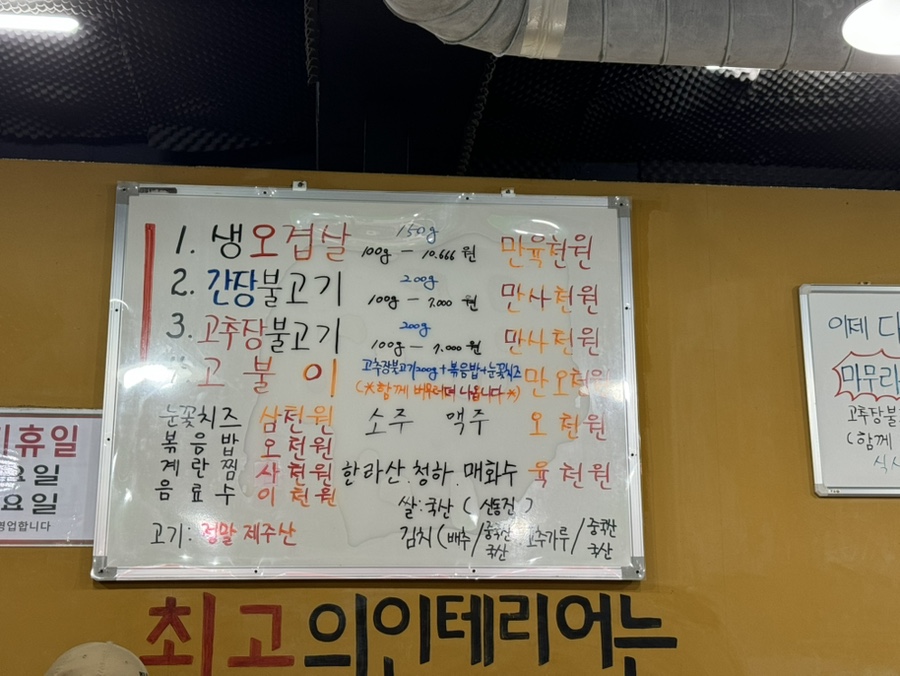 1. 생오겹살 150g 100g - 10.666 원 만육천원
2. 간장불고기 200g 100g - 7.000 원 만사천원
3. 고추장불고기 200g 100g - 7.000 원 만사천원
4. 고불이 고추장불고기200g+볶음밥+눈꽃치즈 만오천원
(※함께 버무려져 나옵니다※)
눈꽃치즈 삼천원 소주 맥주 오천원
볶음밥 오천원
계란찜 사천원 한라산.청하.매화수 육천원
음료수 이천원
쌀:국산 (신동진)
고기: 정말 제주산
김치(배추/중국산 국산 고추가루/중국산 국산
휴일
요일
요일
영업합니다
이제
마무리
고추장불
(함께
최고의인테리어는